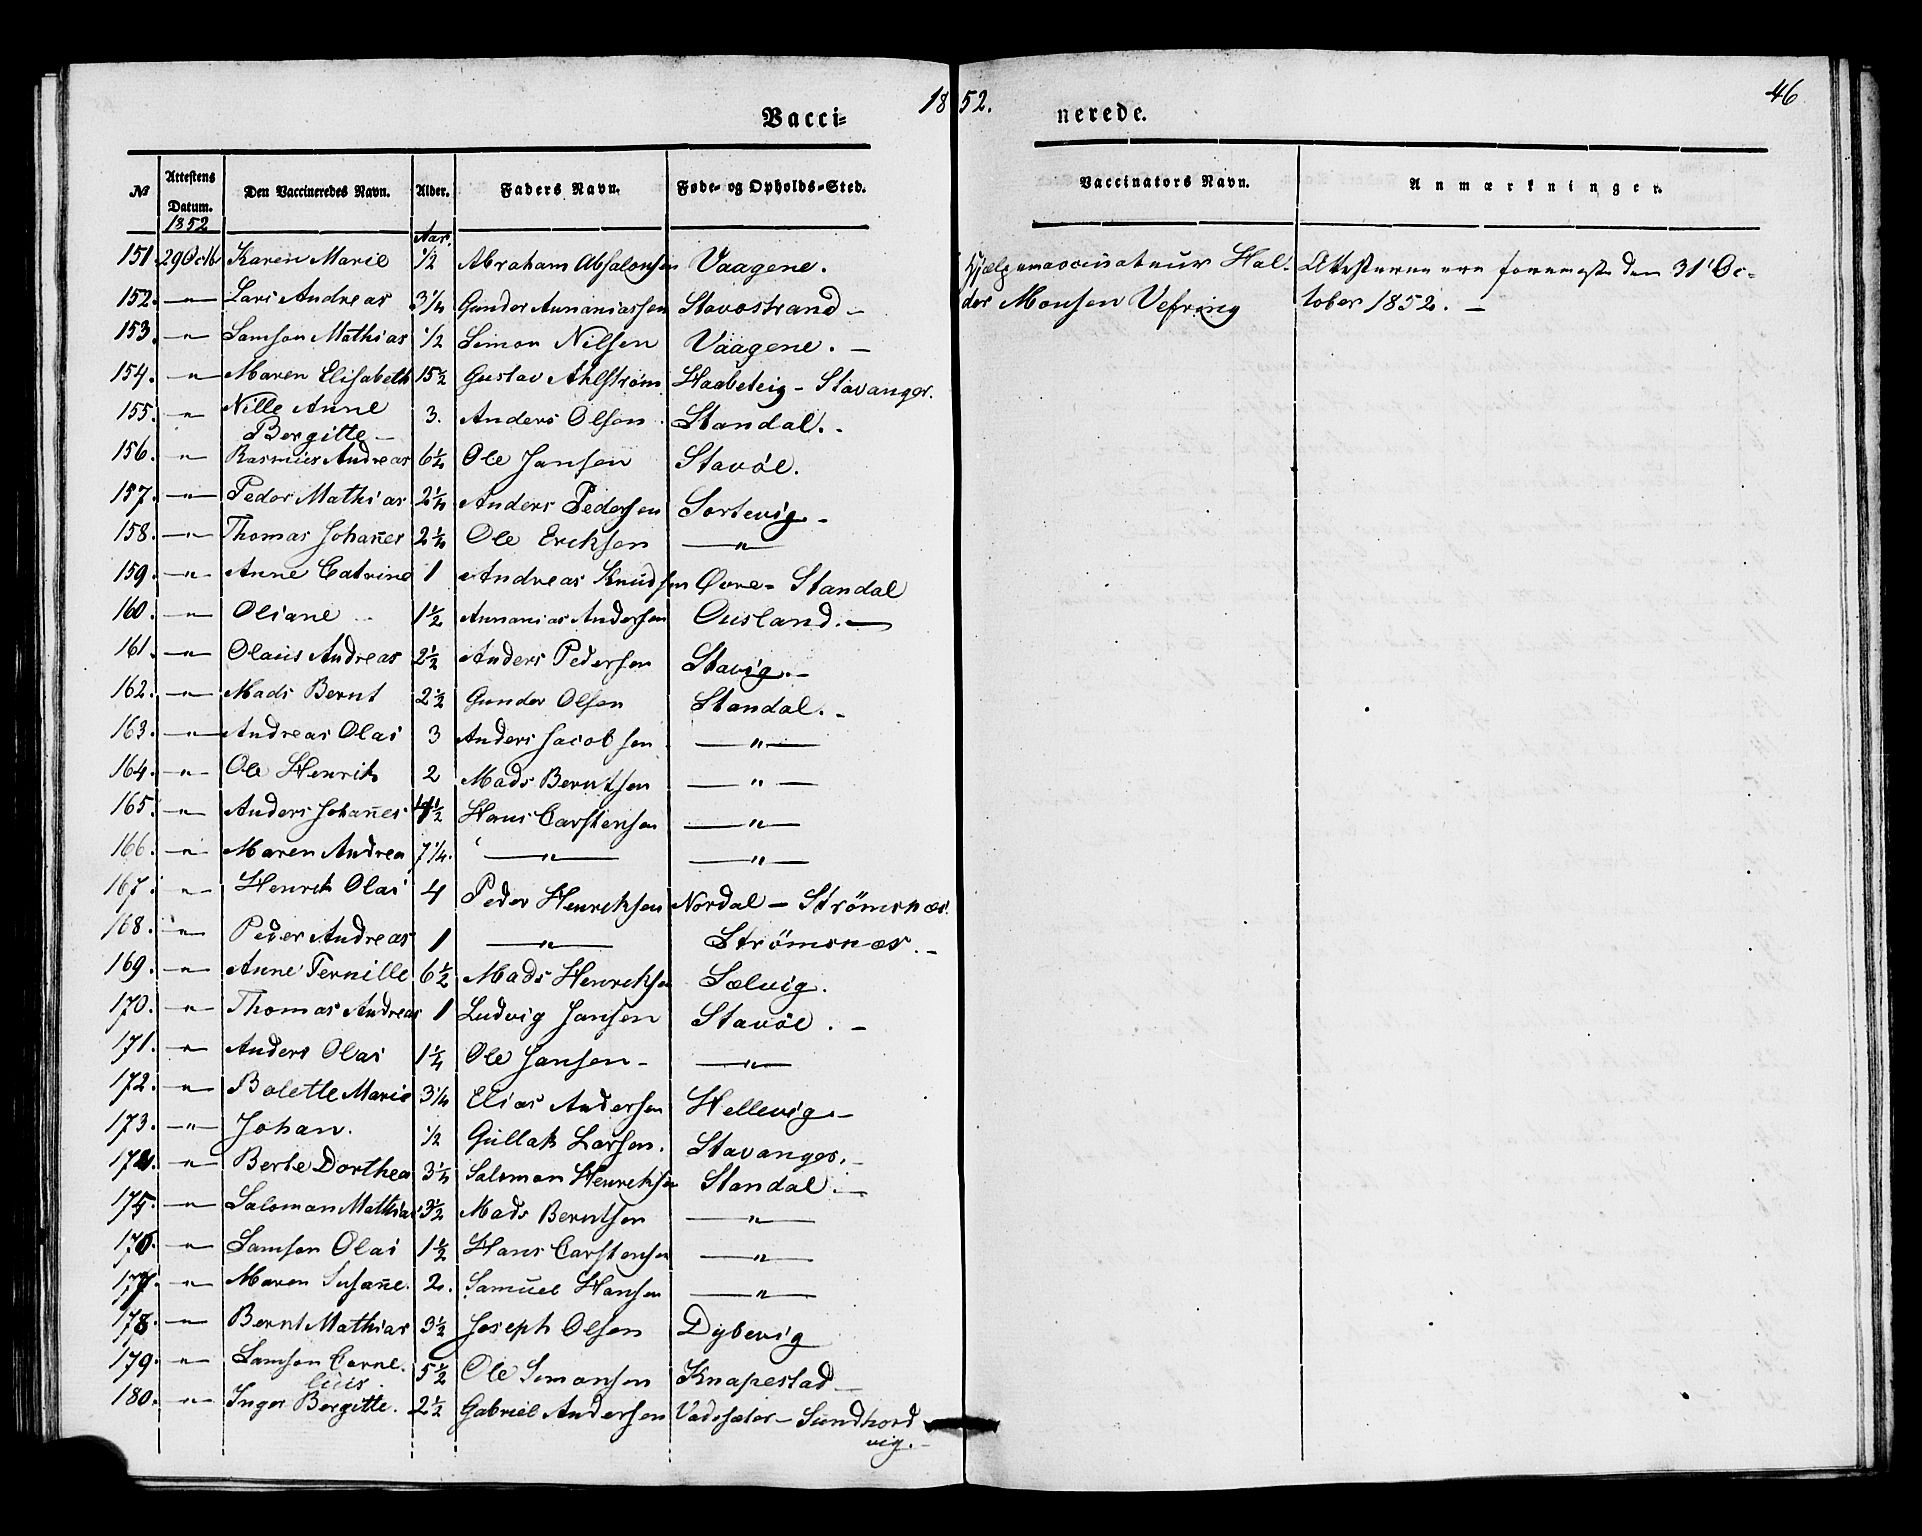 1852.
46
Vacci= nerede.
№ Attestens Datum. Den Vaccineredes Navn. Alder. Faders Navn. Føde- og Opholds-Sted. Vaccinators Navn. Anmærkninger.
1852 Aar.
151. 29 Octb Karen Marie 1/2 Abraham Absalonsen Vaagene. Hjælpevaccinateur Hal- Attesterne ere foreviste den 31' Oc-
152. -"- Lars Andreas 3 1/4 Gunder Annaniassen Stavostrand - dor Monsen Vefring tober 1852. -
153. -"- Samson Mathias 1/2 Simon Nilsen Vaagene. -
154. -"- Maren Elisabeth 15 1/2 Gustav Ahlstrøm Haabeteig - Stavanger.
155. -"- Nille Anne 3. Anders Olson Standal. -
Bergitte -
156. " Rasmus Andreas 6 1/2 Ole Jansen Stavöe.
157. -"- Peder Mathias 2 1/4 Anders Pedersen Sortevig -
158. -"- Thomas Johan̄es 2 1/4 Ole Ericksen -"-
159. -"- Anne Catrine 1 Andreas Knudsen Øvre - Standal
160. -"- Oliane 1 1/2 Annanias Andersen Ousland. -
161. -"- Olaus Andreas 2 1/2 Anders Pedersen Stavig. -
162. -"- Mads Bernt 2 1/2 Gunder Olsen Standal. -
163. -"- Andreas Olai 3 Anders Jacobsen -"-
164. -"- Ole Henrik 2 Mads Berntsen -"-
165. -"- Anders Johan̄es 4 1/2 Hans Carstensen -"-
166. -"- Maren Andrea 7 1/4. -"- -"-
167. " Henrik Olai 4 Peder Henriksen Nordal - Strömsnæs.
168. -"- Peder Andreas 1 -"- Strömsnæs. -
169. -"- Anne Pernille 6 1/2 Mads Henriksen Sælvig.
170. -"- Thomas Andreas 1 Ludvig Jansen Stavöe. -
171. -"- Anders Olai 1 1/4 Ole Jansen - -"-
172. -"- Bolette Marie 3 1/4 Elias Andersen Hellevig. -
173. -"- Johan. 1/2 Gullak Larsen. Stavanger. -
174. -"- Berte Dorthea 3 1/4 Salomon Henriksen Standal. -
175. -"- Saloman Mathias 3 1/2 Mads Berntsen -"-
176. -"- Samson Olai 1 1/2 Hans Carstensen -"-
177. -"- Maren Susan̄e. 2. Samuel Hansen -"-
178. -"- Bernt Mathias 3 1/2 Joseph Olsen Dybevig
179. -"- Samson Corne- 5 1/2 Ole Simonsen Knapestad -
lius.
180. -"- Inger Bergitte. 2 1/2 Gabriel Andersen Vadsæter - Sundhord
vig. -